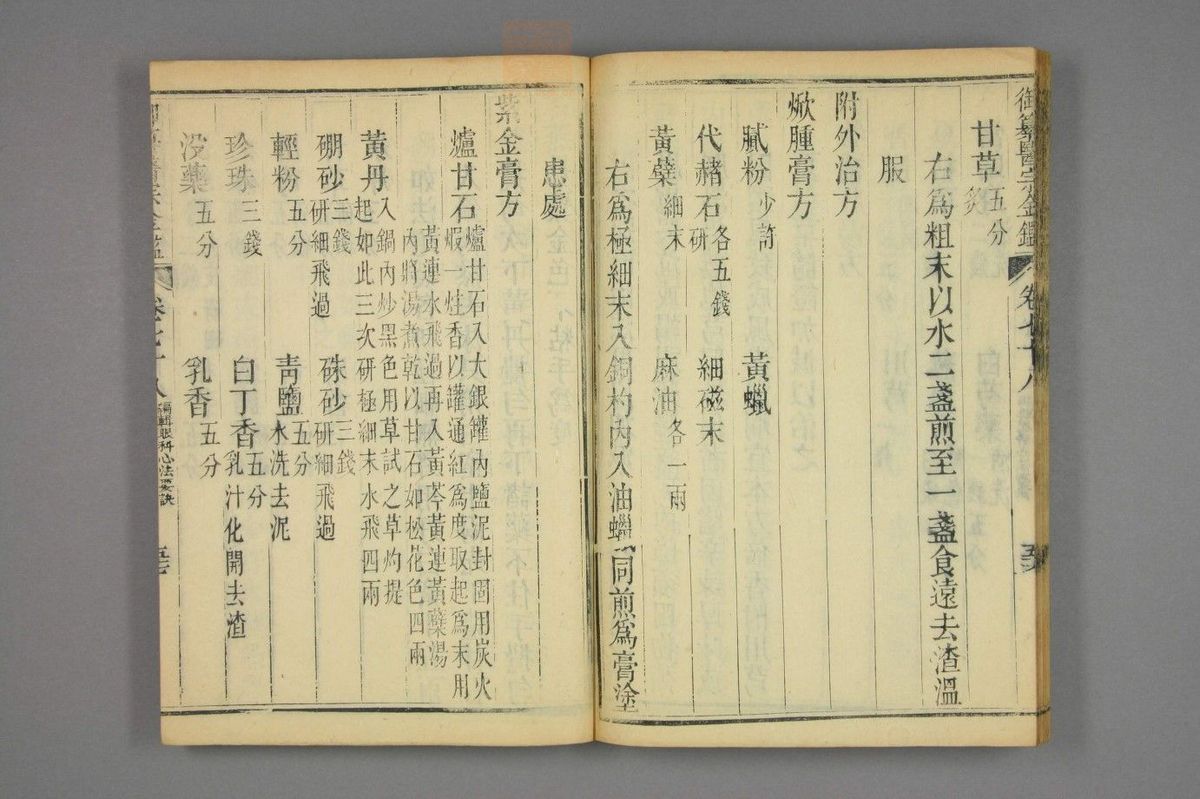 御纂醫宗金鑑 卷七十八
甘草炙五分
右爲粗末以水二盞煎至一盞食遠去渣溫
服
附外治方
焮腫膏方
膩粉少許 黃蠟
代赭石研各五錢 細磁末
黃蘗細末 麻油各一兩
右爲極細末入銅杓內入油蠟同煎爲膏塗
患處
紫金膏方
爐甘石爐甘石入大銀罐內鹽泥封固用炭火
煅一炷香以罐通紅爲度取起爲末用
黃連水飛過再入黃芩黃連黃蘗湯
內將湯煮乾以甘石如松花色四兩
黃丹入鍋內炒黑色用草試之草灼提
起如此三次研極細末水飛四兩
硼砂三錢研細飛過 硃砂三錢研細飛過
輕粉五分 靑鹽五分水洗去泥
珍珠三錢 白丁香五分乳汁化開去渣
沒藥五分 乳香五分
御纂醫宗金鑑 卷七十八 編輯眼科心法要訣